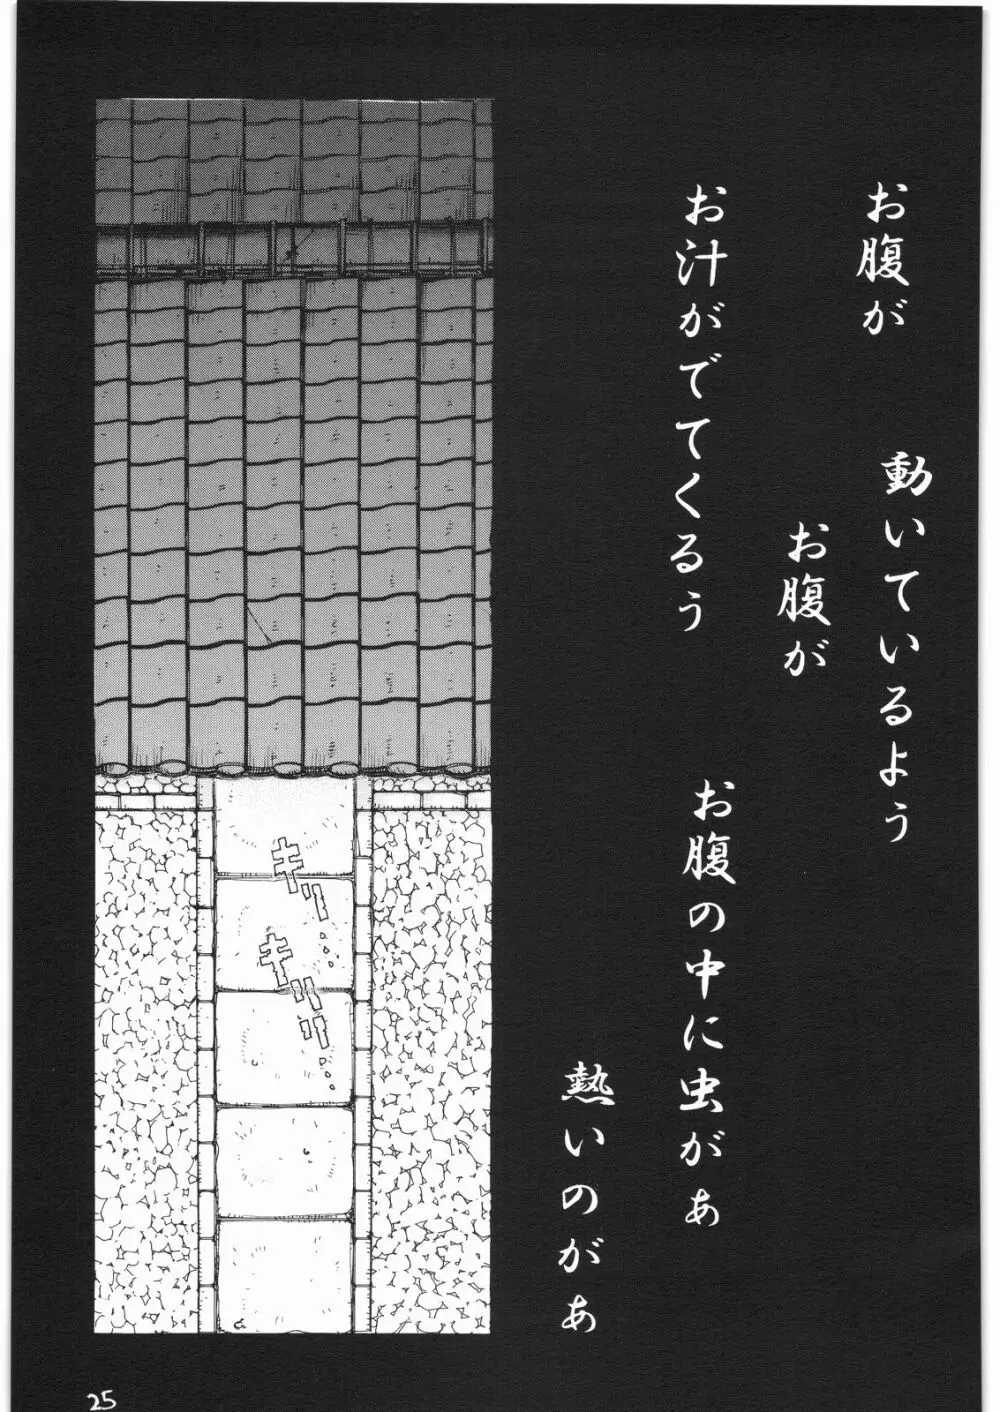 お腹が
動いているよう
お腹が
お汁がでてくるぅ
お腹の中に虫がぁ
熱いのがぁ
キリ…
キリリ…
25